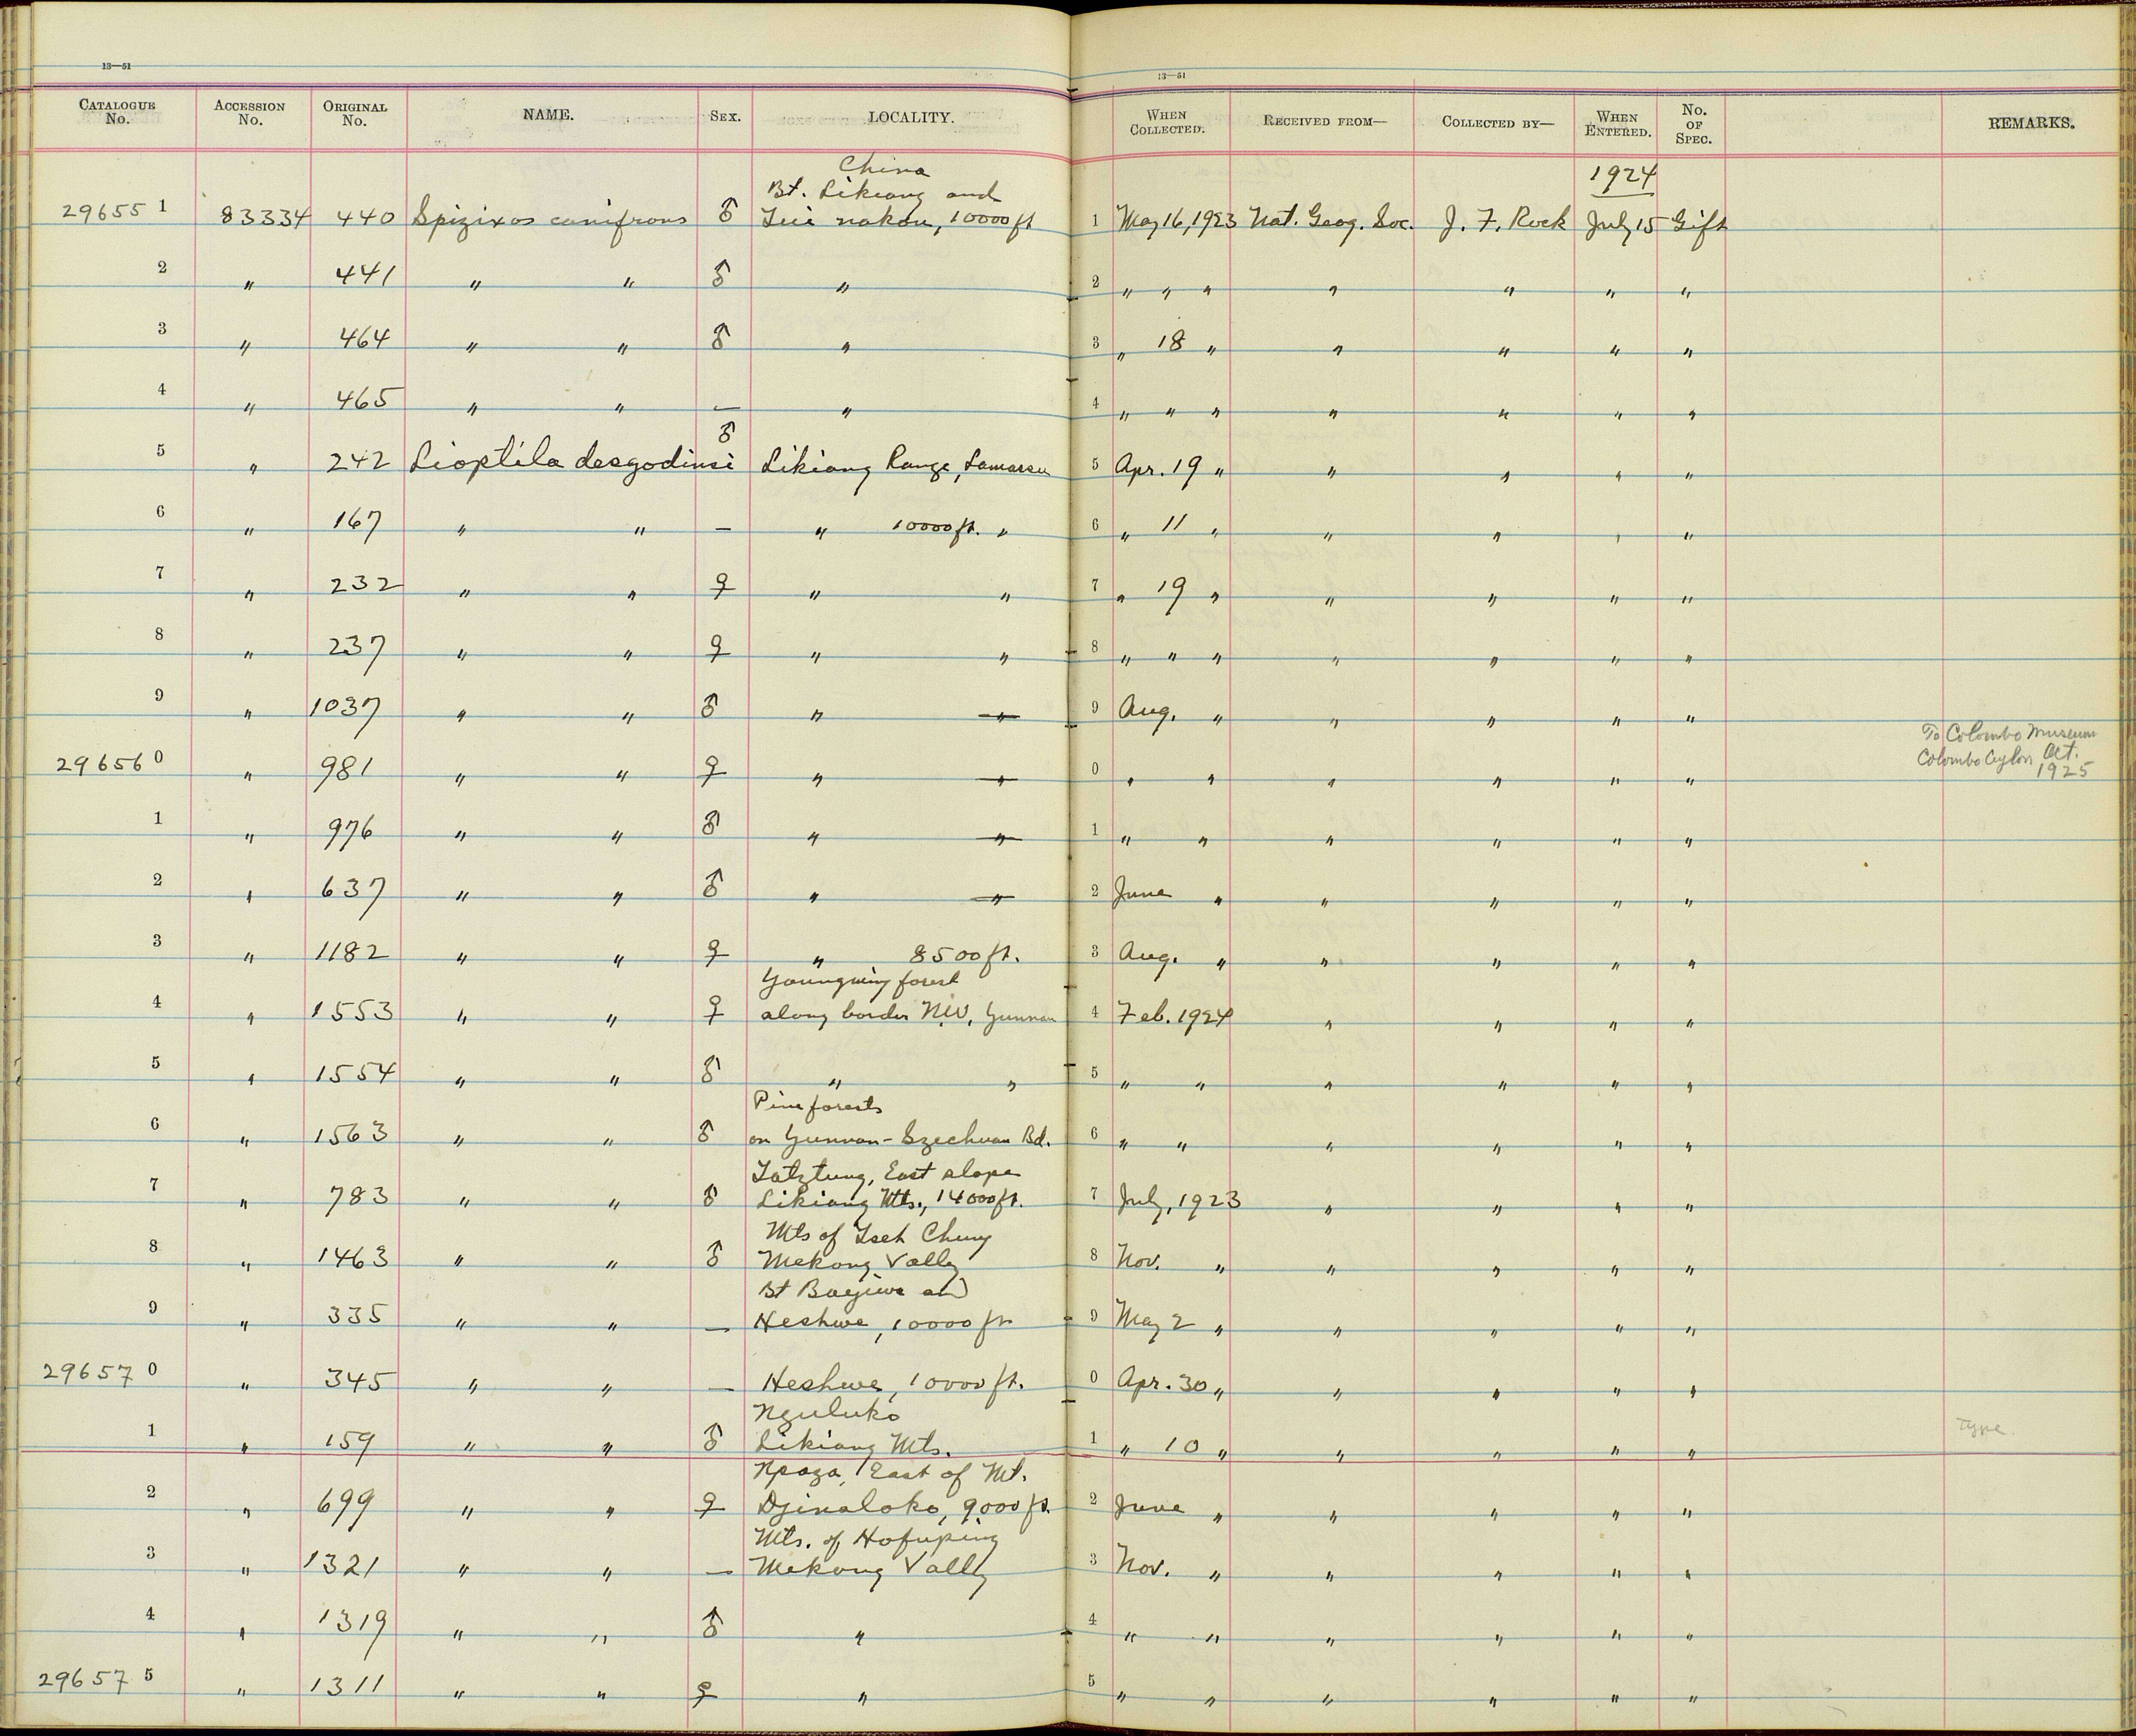 13—51
13—51
CATALOGUE No. ACCESSION No. ORIGINAL No. NAME. SEX. LOCALITY. WHEN COLLECTED. RECEIVED FROM— COLLECTED BY— WHEN ENTERED. No. OF SPEC. REMARKS.
China
1924
Bt. Likiang and
29655 1 83334 440 Spizixos canifrons ♂ nakou, 10000 ft 1 May 16, 1923 Nat. Geog. Soc. J. F. Rock July 15 Gift
2 " 441 " " ♂ " 2 " " " " " " "
3 " 464 " " ♂ " 3 " 18 " " " " "
4 " 465 " " — " 4 " " " " " " "
5 " 242 Lioptila desgodinsi ♂ Likiang Range, 5 Apr. 19 " " " " "
6 " 167 " " — " 10000 ft. " 6 " 11 " " " " "
7 " 232 " " ♀ " " 7 " 19 " " " " "
8 " 237 " " ♀ " " 8 " " " " " " "
9 " 1037 " " ♂ " " 9 Aug. " " " " "
To Colombo Museum
Colombo Ceylon Oct.
1925
29656 0 " 981 " " ♀ " " 0 " " " " " "
1 " 976 " " ♂ " " 1 " " " " " "
2 " 637 " " ♂ " " 2 June " " " " "
3 " 1182 " " ♀ " 8500 ft. 3 Aug. " " " " "
Youngning forest
4 " 1553 " " ♀ along border NW. Yunnan 4 Feb. 1924 " " " "
5 " 1554 " " ♂ " " 5 " " " " " "
Pine forests
6 " 1563 " " ♂ on Yunnan-Szechuan Bd. 6 " " " " " "
Tatztung, East slope
7 " 783 " " ♂ Likiang Mts., 14000 ft. 7 July, 1923 " " " "
Mts of Tseh Chung
8 " 1463 " " ♂ Mekong Vally 8 Nov. " " " " "
Bt and
9 " 335 " " — Heshwe, 10000 ft 9 May 2 " " " " "
29657 0 " 345 " " — Heshwe, 10000 ft. 0 Apr. 30 " " " " "
Nguluko
1 " 159 " " ♂ Likiang Mts. 1 " 10 " " " " " Type
Npoza, East of Mt.
2 " 699 " " ♀ Djinaloko, 9000 ft. 2 June " " " " "
Mts. of Hofuping
3 " 1321 " " — Mekong Vally 3 Nov. " " " " "
4 " 1319 " " ♂ " 4 " " " " " "
29657 5 " 1311 " " ♀ " 5 " " " " " "